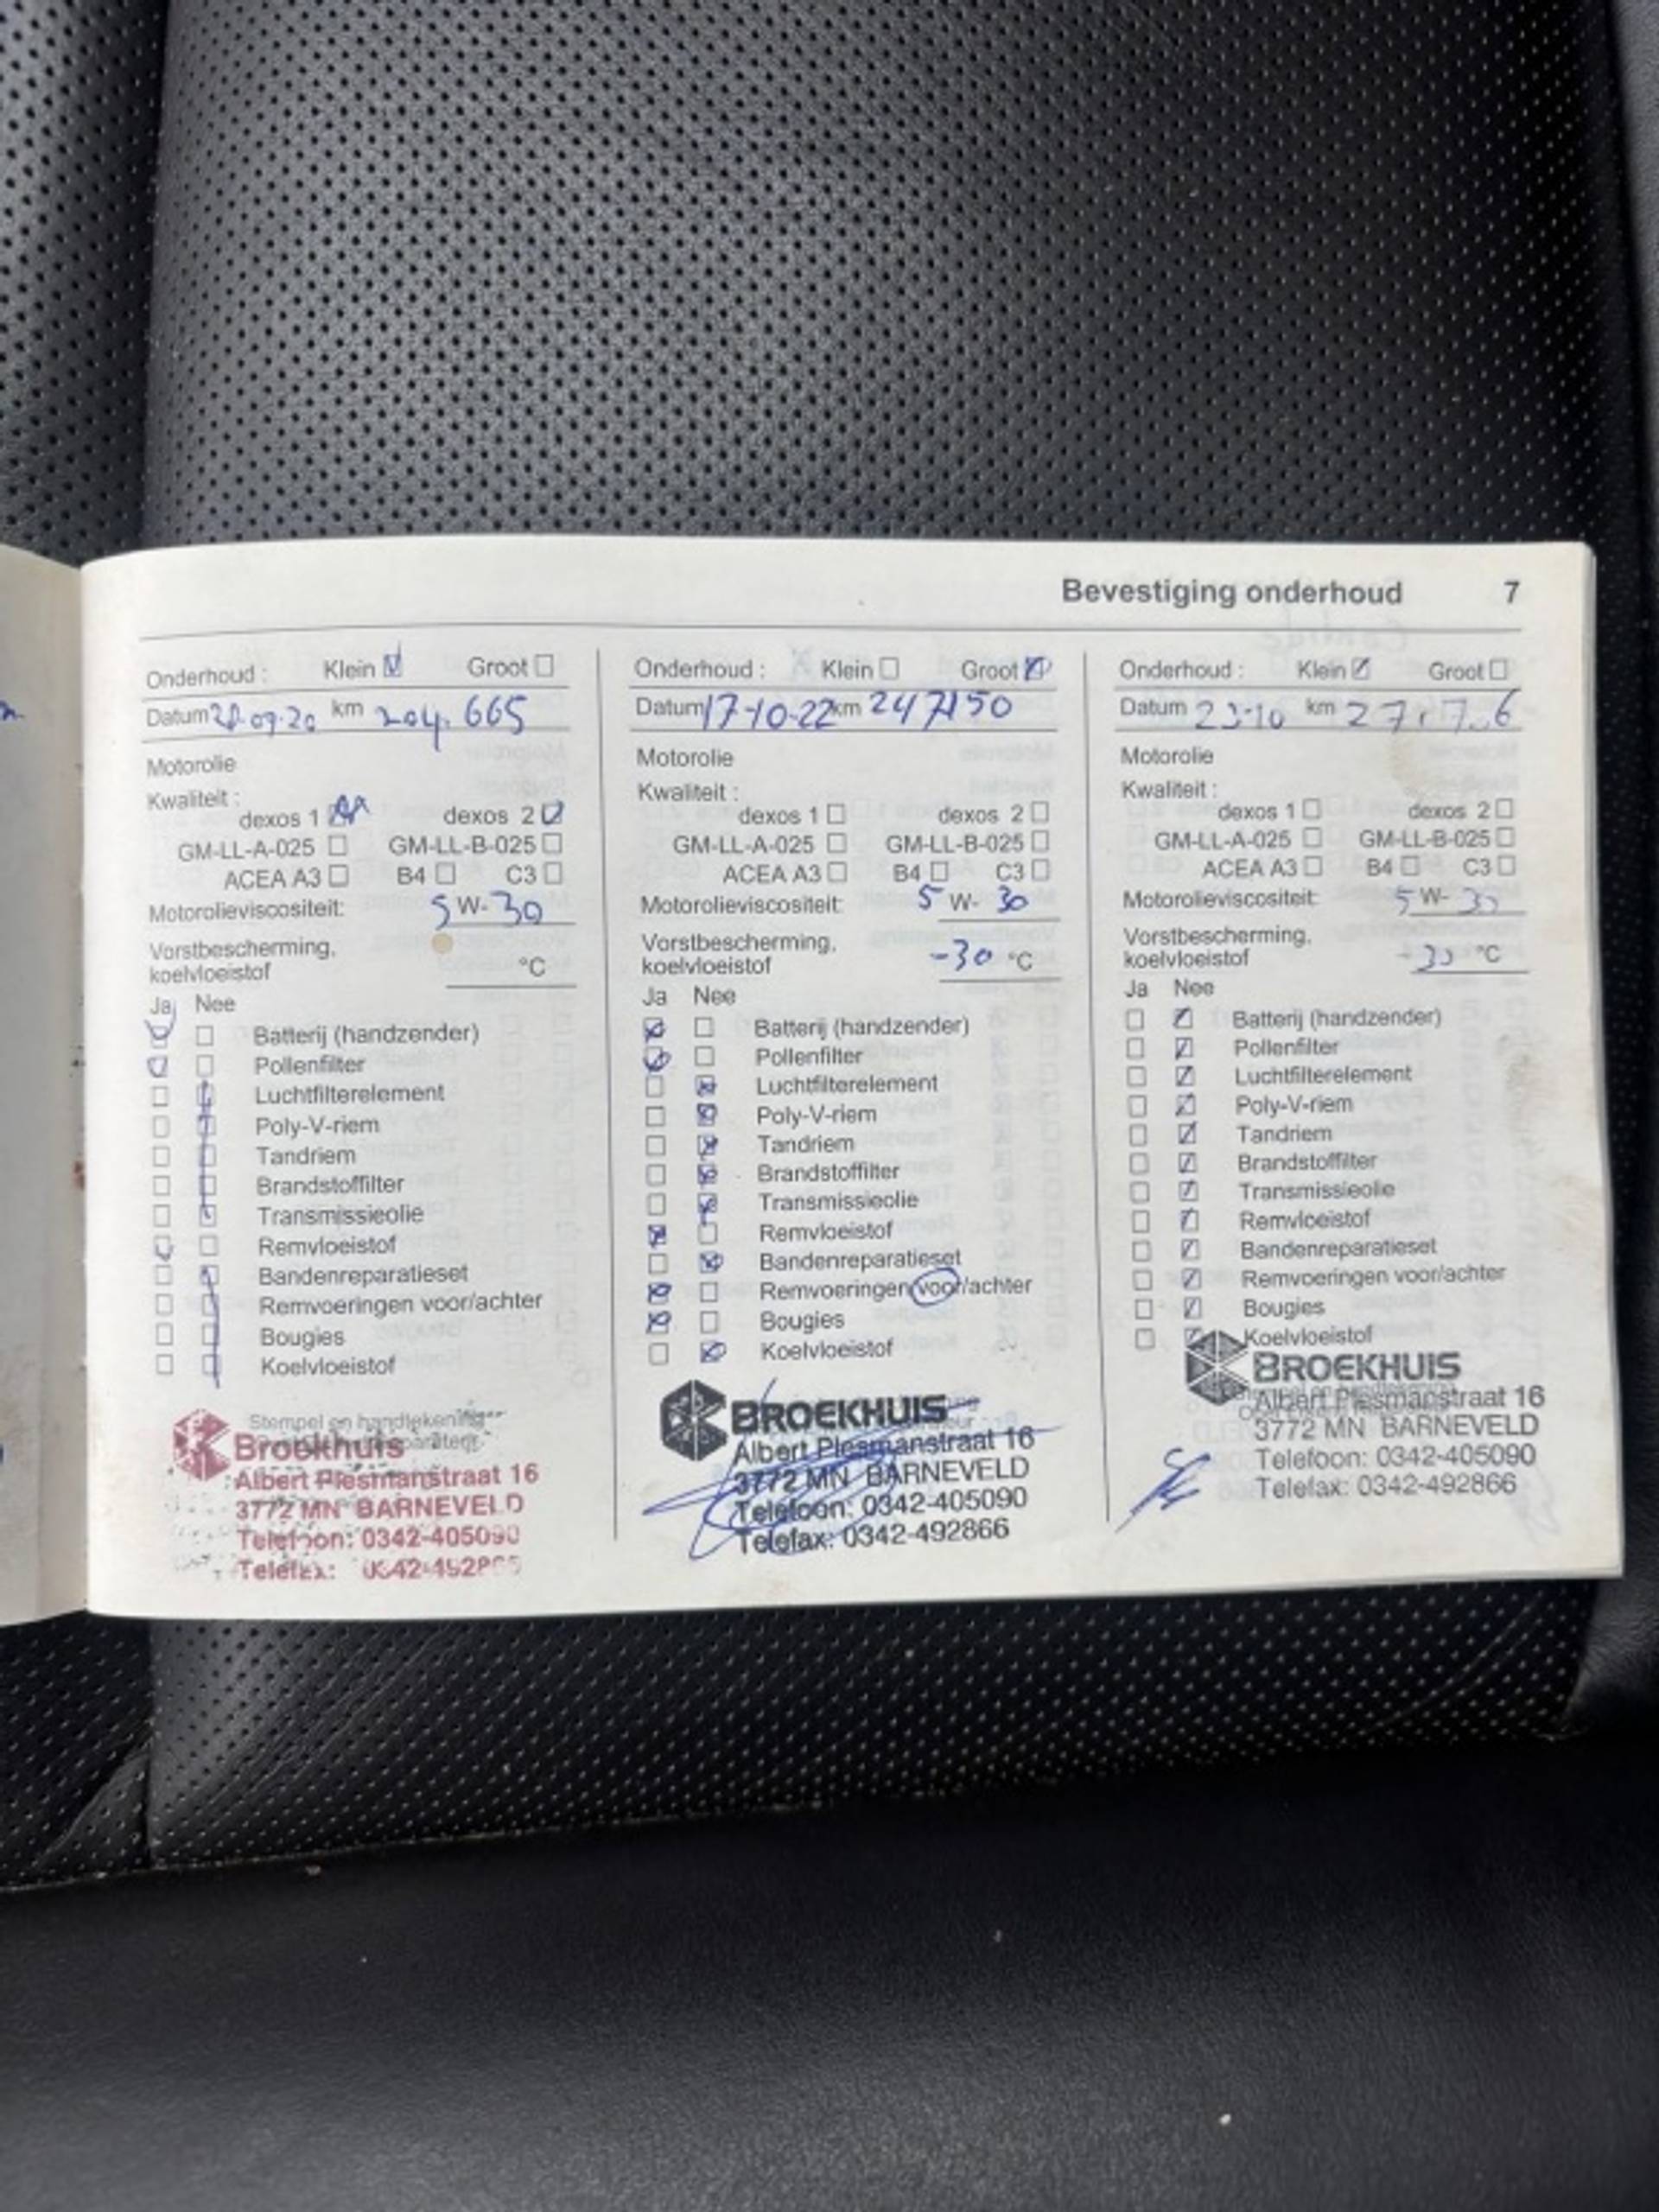 Bevestiging onderhoud 7
Onderhoud : Klein Groot
Datum 28.09.20 km 204.665
Motorolie
Kwaliteit :
dexos 1 dexos 2
GM-LL-A-025 GM-LL-B-025
ACEA A3 B4 C3
Motorolieviscositeit: 5 W- 30
Vorstbescherming,
koelvloeistof °C
Ja Nee
Batterij (handzender)
Pollenfilter
Luchtfilterelement
Poly-V-riem
Tandriem
Brandstoffilter
Transmissieolie
Remvloeistof
Bandenreparatieset
Remvoeringen voor/achter
Bougies
Koelvloeistof
Stempel en handtekening
Broekhuis
Albert Plesmanstraat 16
3772 MN BARNEVELD
Telefoon: 0342-405090
Telefax: 0342-492866
Onderhoud : Klein Groot
Datum 17-10-22 km 247150
Motorolie
Kwaliteit :
dexos 1 dexos 2
GM-LL-A-025 GM-LL-B-025
ACEA A3 B4 C3
Motorolieviscositeit: 5 W- 30
Vorstbescherming,
koelvloeistof -30 °C
Ja Nee
Batterij (handzender)
Pollenfilter
Luchtfilterelement
Poly-V-riem
Tandriem
Brandstoffilter
Transmissieolie
Remvloeistof
Bandenreparatieset
Remvoeringen voor/achter
Bougies
Koelvloeistof
BROEKHUIS
Albert Plesmanstraat 16
3772 MN BARNEVELD
Telefoon: 0342-405090
Telefax: 0342-492866
Onderhoud : Klein Groot
Datum 23-10 km
Motorolie
Kwaliteit :
dexos 1 dexos 2
GM-LL-A-025 GM-LL-B-025
ACEA A3 B4 C3
Motorolieviscositeit: 5 W- 30
Vorstbescherming,
koelvloeistof -30 °C
Ja Nee
Batterij (handzender)
Pollenfilter
Luchtfilterelement
Poly-V-riem
Tandriem
Brandstoffilter
Transmissieolie
Remvloeistof
Bandenreparatieset
Remvoeringen voor/achter
Bougies
Koelvloeistof
BROEKHUIS
Albert Plesmanstraat 16
3772 MN BARNEVELD
Telefoon: 0342-405090
Telefax: 0342-492866